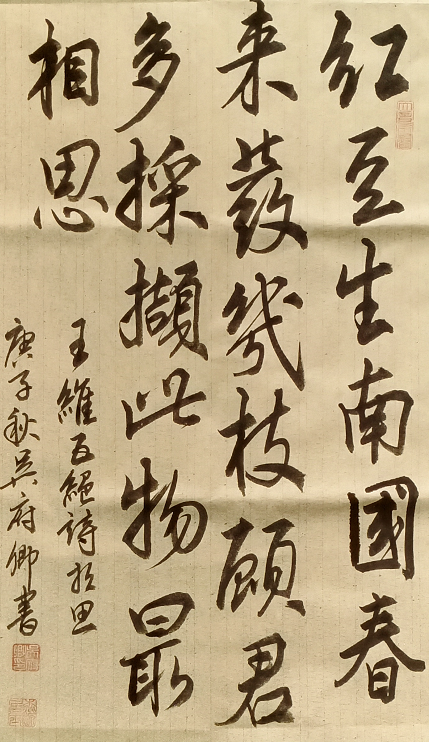 紅豆生南國春
来發幾枝顾君
多採擷此物最
相思
王維五絕詩相思
庚子秋吴府卿書